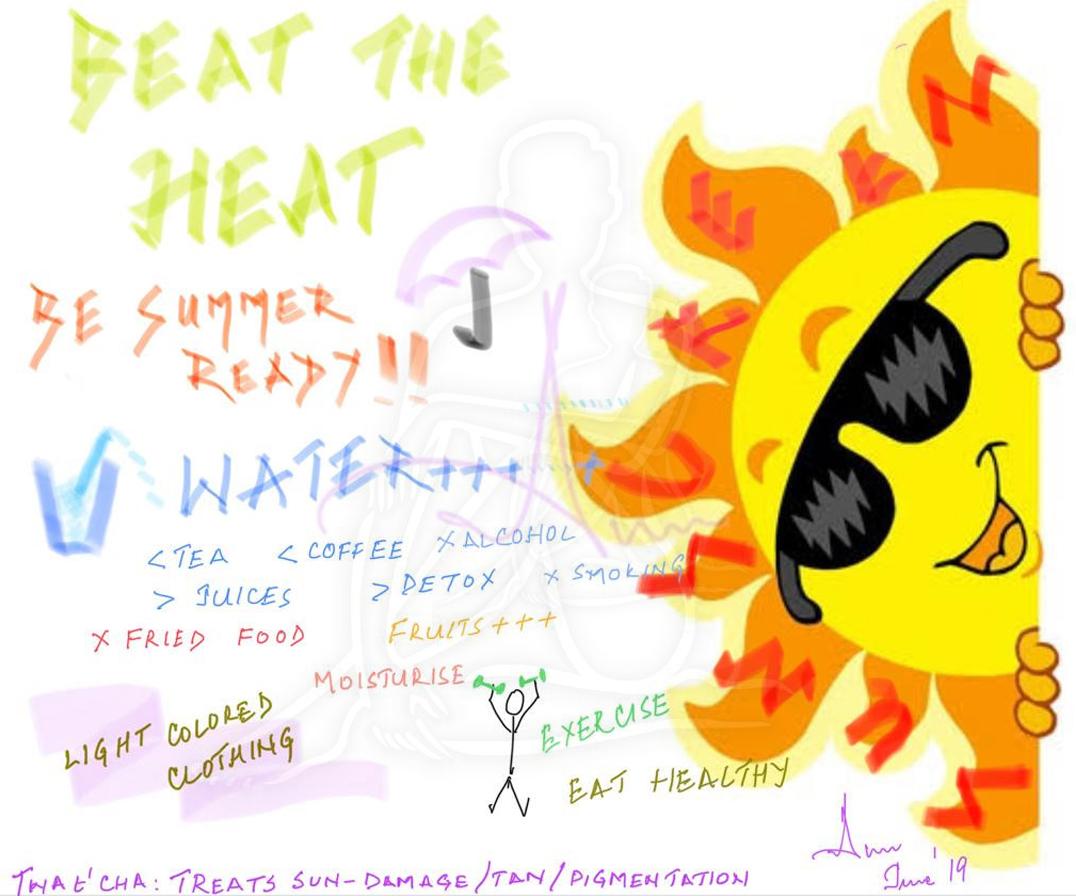 BEAT THE
HEAT
BE SUMMER
READY!!
WATER++++ +
< TEA < COFFEE X ALCOHOL
> JUICES > DETOX X SMOKING
X FRIED FOOD FRUITS+++
MOISTURISE
LIGHT COLORED
CLOTHING
EXERCISE
EAT HEALTHY
June '19
TWAE'CHA: TREATS SUN-DAMAGE/TAN/PIGMENTATION